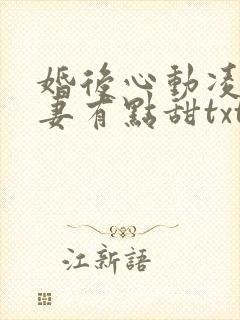 婚後心動凌
妻有點甜txt
江新語